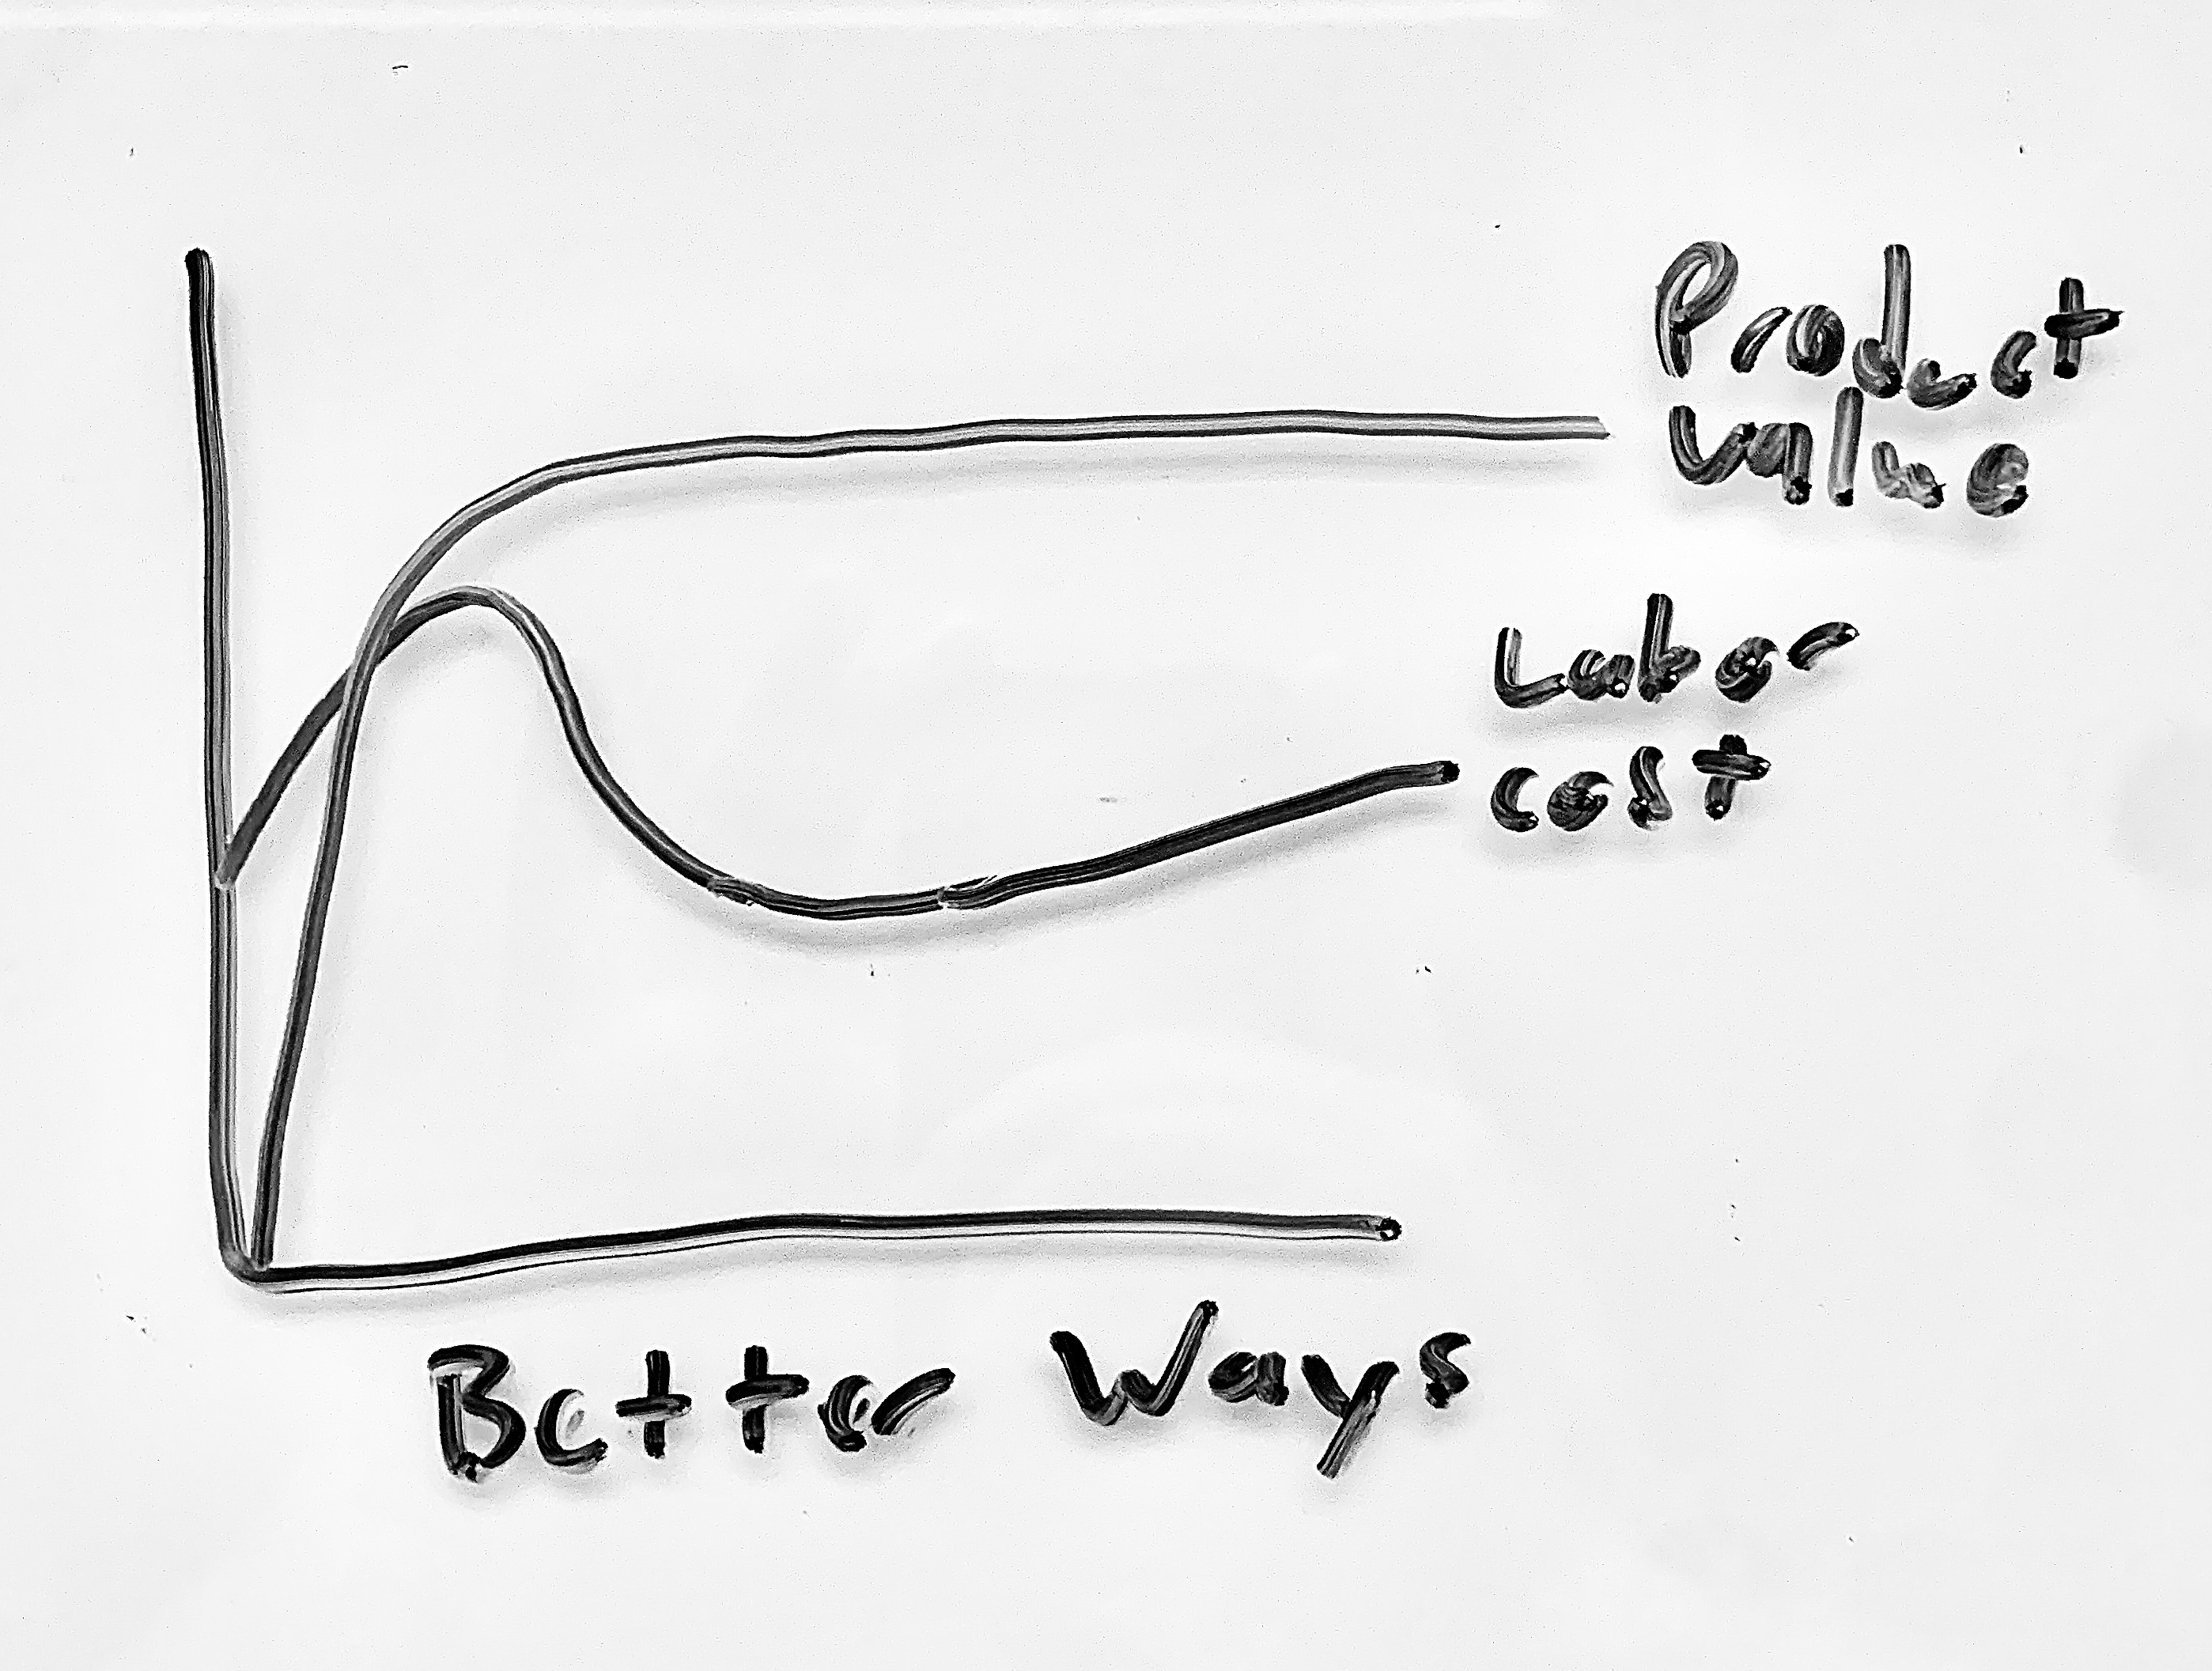 Product
value
Labor
cost
Better Ways